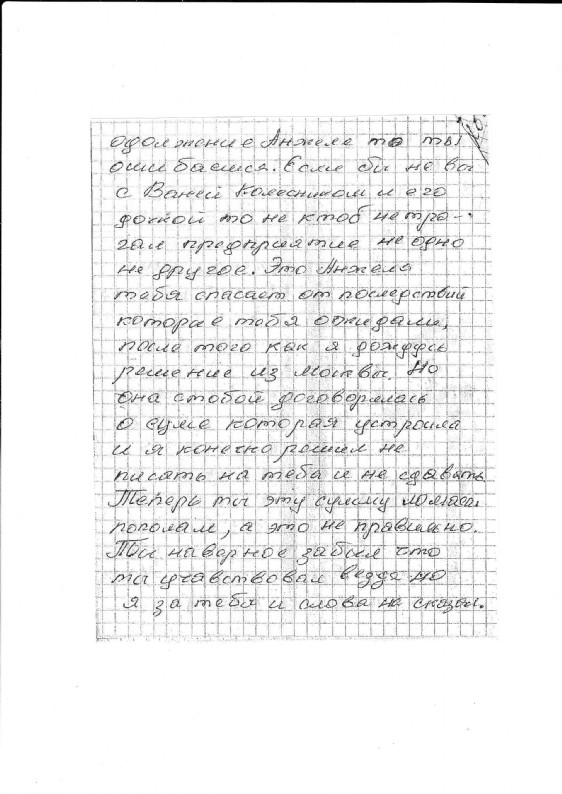 одолжение Анжеле то ты
ошибаешся. Если бы не вы
с Ваней Колесником и его
дочкой то не ктоб не тро-
гал предприятие не одно
не другое. Это Анжела
тебя спасает от последствий
которые тебя ожидали,
после того как я дождусь
решение из Москвы. Но
она стобой договорилась
о суме которая устроила
и я конечно решил не
писать на тебя и не сдавать
Теперь ты эту сумму
пополам, а это не правильно.
Ты наверное забыл что
ты учавствовал везде но
я за тебя и слова не сказал.